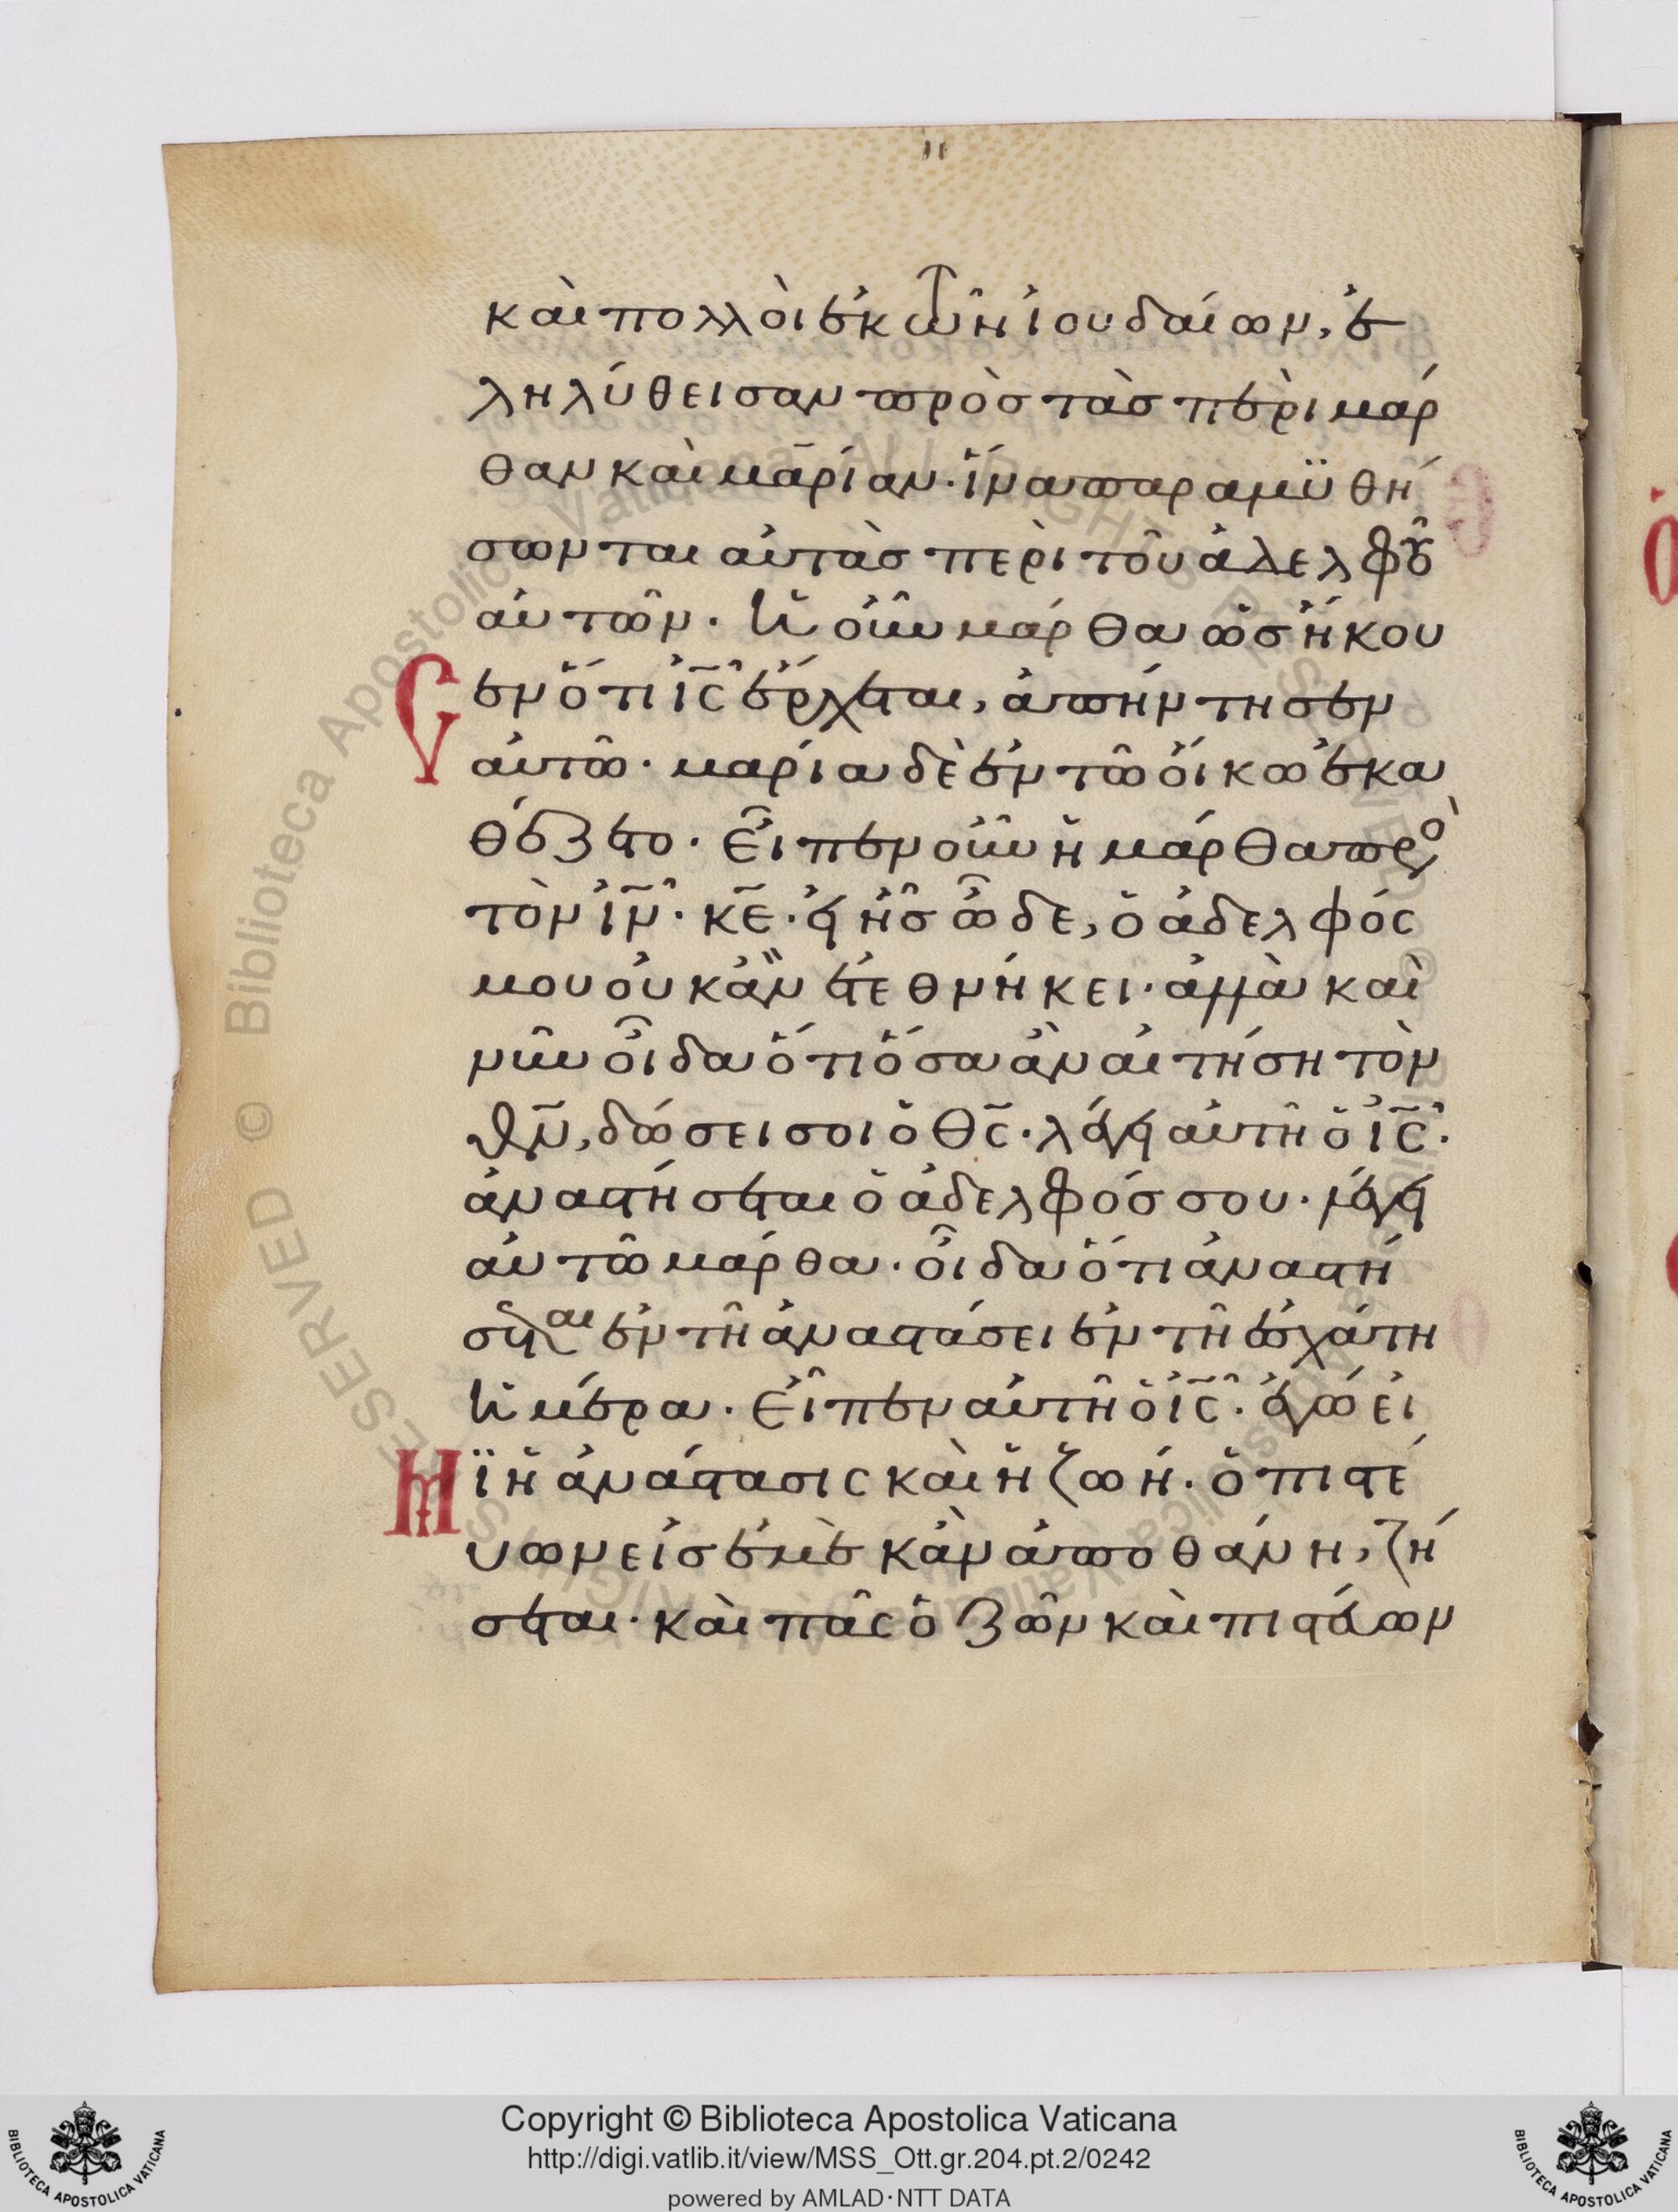 καὶ πολλοὶ ἐκ τῶν ἰουδαίων, ἐ
ληλύθεισαν πρὸσ τὰσ περὶ μάρ
θαν καὶ μαρίαν. ἵνα παραμϋθή
σωνται αὐτὰσ περὶ τοῦ ἀδελφοῦ
αὐτῶν. ἡ οὖν μάρθα ὡσ ἤκου
Σ εν ὅτι ἰς̃ ἔρχεται, ἀπήντησεν
αὐτῶ. μαρία δὲ ἐν τῶ οἴκω ἐκα
θέζετο. Εἶπεν οὖν ἡ μάρθα πρὸ
τὸν ἰν̃. κε̃. εἰ ἦσ ὧδε, ὁ ἀδελφός
μου οὐκ ἂν ἐτεθνήκει. ἀλλὰ καὶ
νῦν οἶδα ὅτι ὅσα ἂν αἰτήση τὸν
θν̃, δώσει σοι ὁ θς̃. λέγει αὐτῆ ὁ ἰς̃.
ἀναστήσεται ὁ ἀδελφόσ σου. λέγει
αὐτῶ μάρθα. οἶδα ὅτι ἀναστή
σεται ἐν τῆ ἀναστάσει ἐν τῆ ἐσχάτη
ἡμέρα. Εἶπεν αὐτῆ ὁ ἰς̃. ἐγώ εἰ
Μ ϊ ἡ ἀνάστασις καὶ ἡ ζωή. ὁ πιστέ
υων εἰσ ἐμὲ κἂν ἀποθάνη, ζή
σεται. καὶ πᾶς ὁ ζῶν καὶ πιστέυων
Copyright © Biblioteca Apostolica Vaticana
http://digi.vatlib.it/view/MSS_Ott.gr.204.pt.2/0242
powered by AMLAD·NTT DATA
BIBLIOTECA APOSTOLICA VATICANA
BIBLIOTECA APOSTOLICA VATICANA